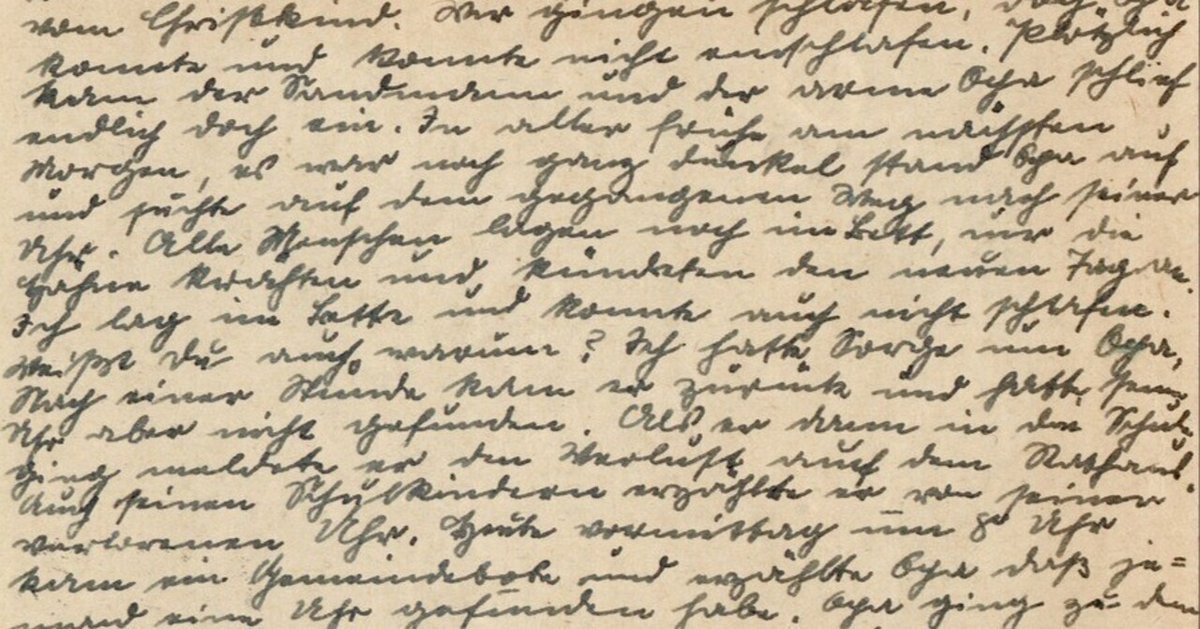 vom Christkind. Wir gingen schlafen, doch Opa
konnte und konnte nicht einschlafen. Plötzlich
kam der Sandmann und der arme Opa schlief
endlich doch ein. In aller frühe am nächsten
Morgen, es war noch ganz dunkel stand Opa auf
und suchte auf dem gegangenen Weg nach seiner
Uhr. Alle Menschen lagen noch im Bett, nur die
Hähne krachten und kündeten den neuen Tag an.
Ich lag im Bette und konnte auch nicht schlafen.
Weißt Du auch warum? Ich hatte Sorge um Opa,
Nach einer Stunde kam er zurück und hatte seine
Uhr aber nicht gefunden. Als er dann in die Schule
ging meldete er den Verlust auf dem Rathaus.
Auch seinen Schulkindern erzählte er von seiner
verlorenen Uhr. Heute vormittag um 8 Uhr
kam ein Gemeindebote und erzählte Opa daß je=
mand eine Uhr gefunden habe. Opa ging zu dem